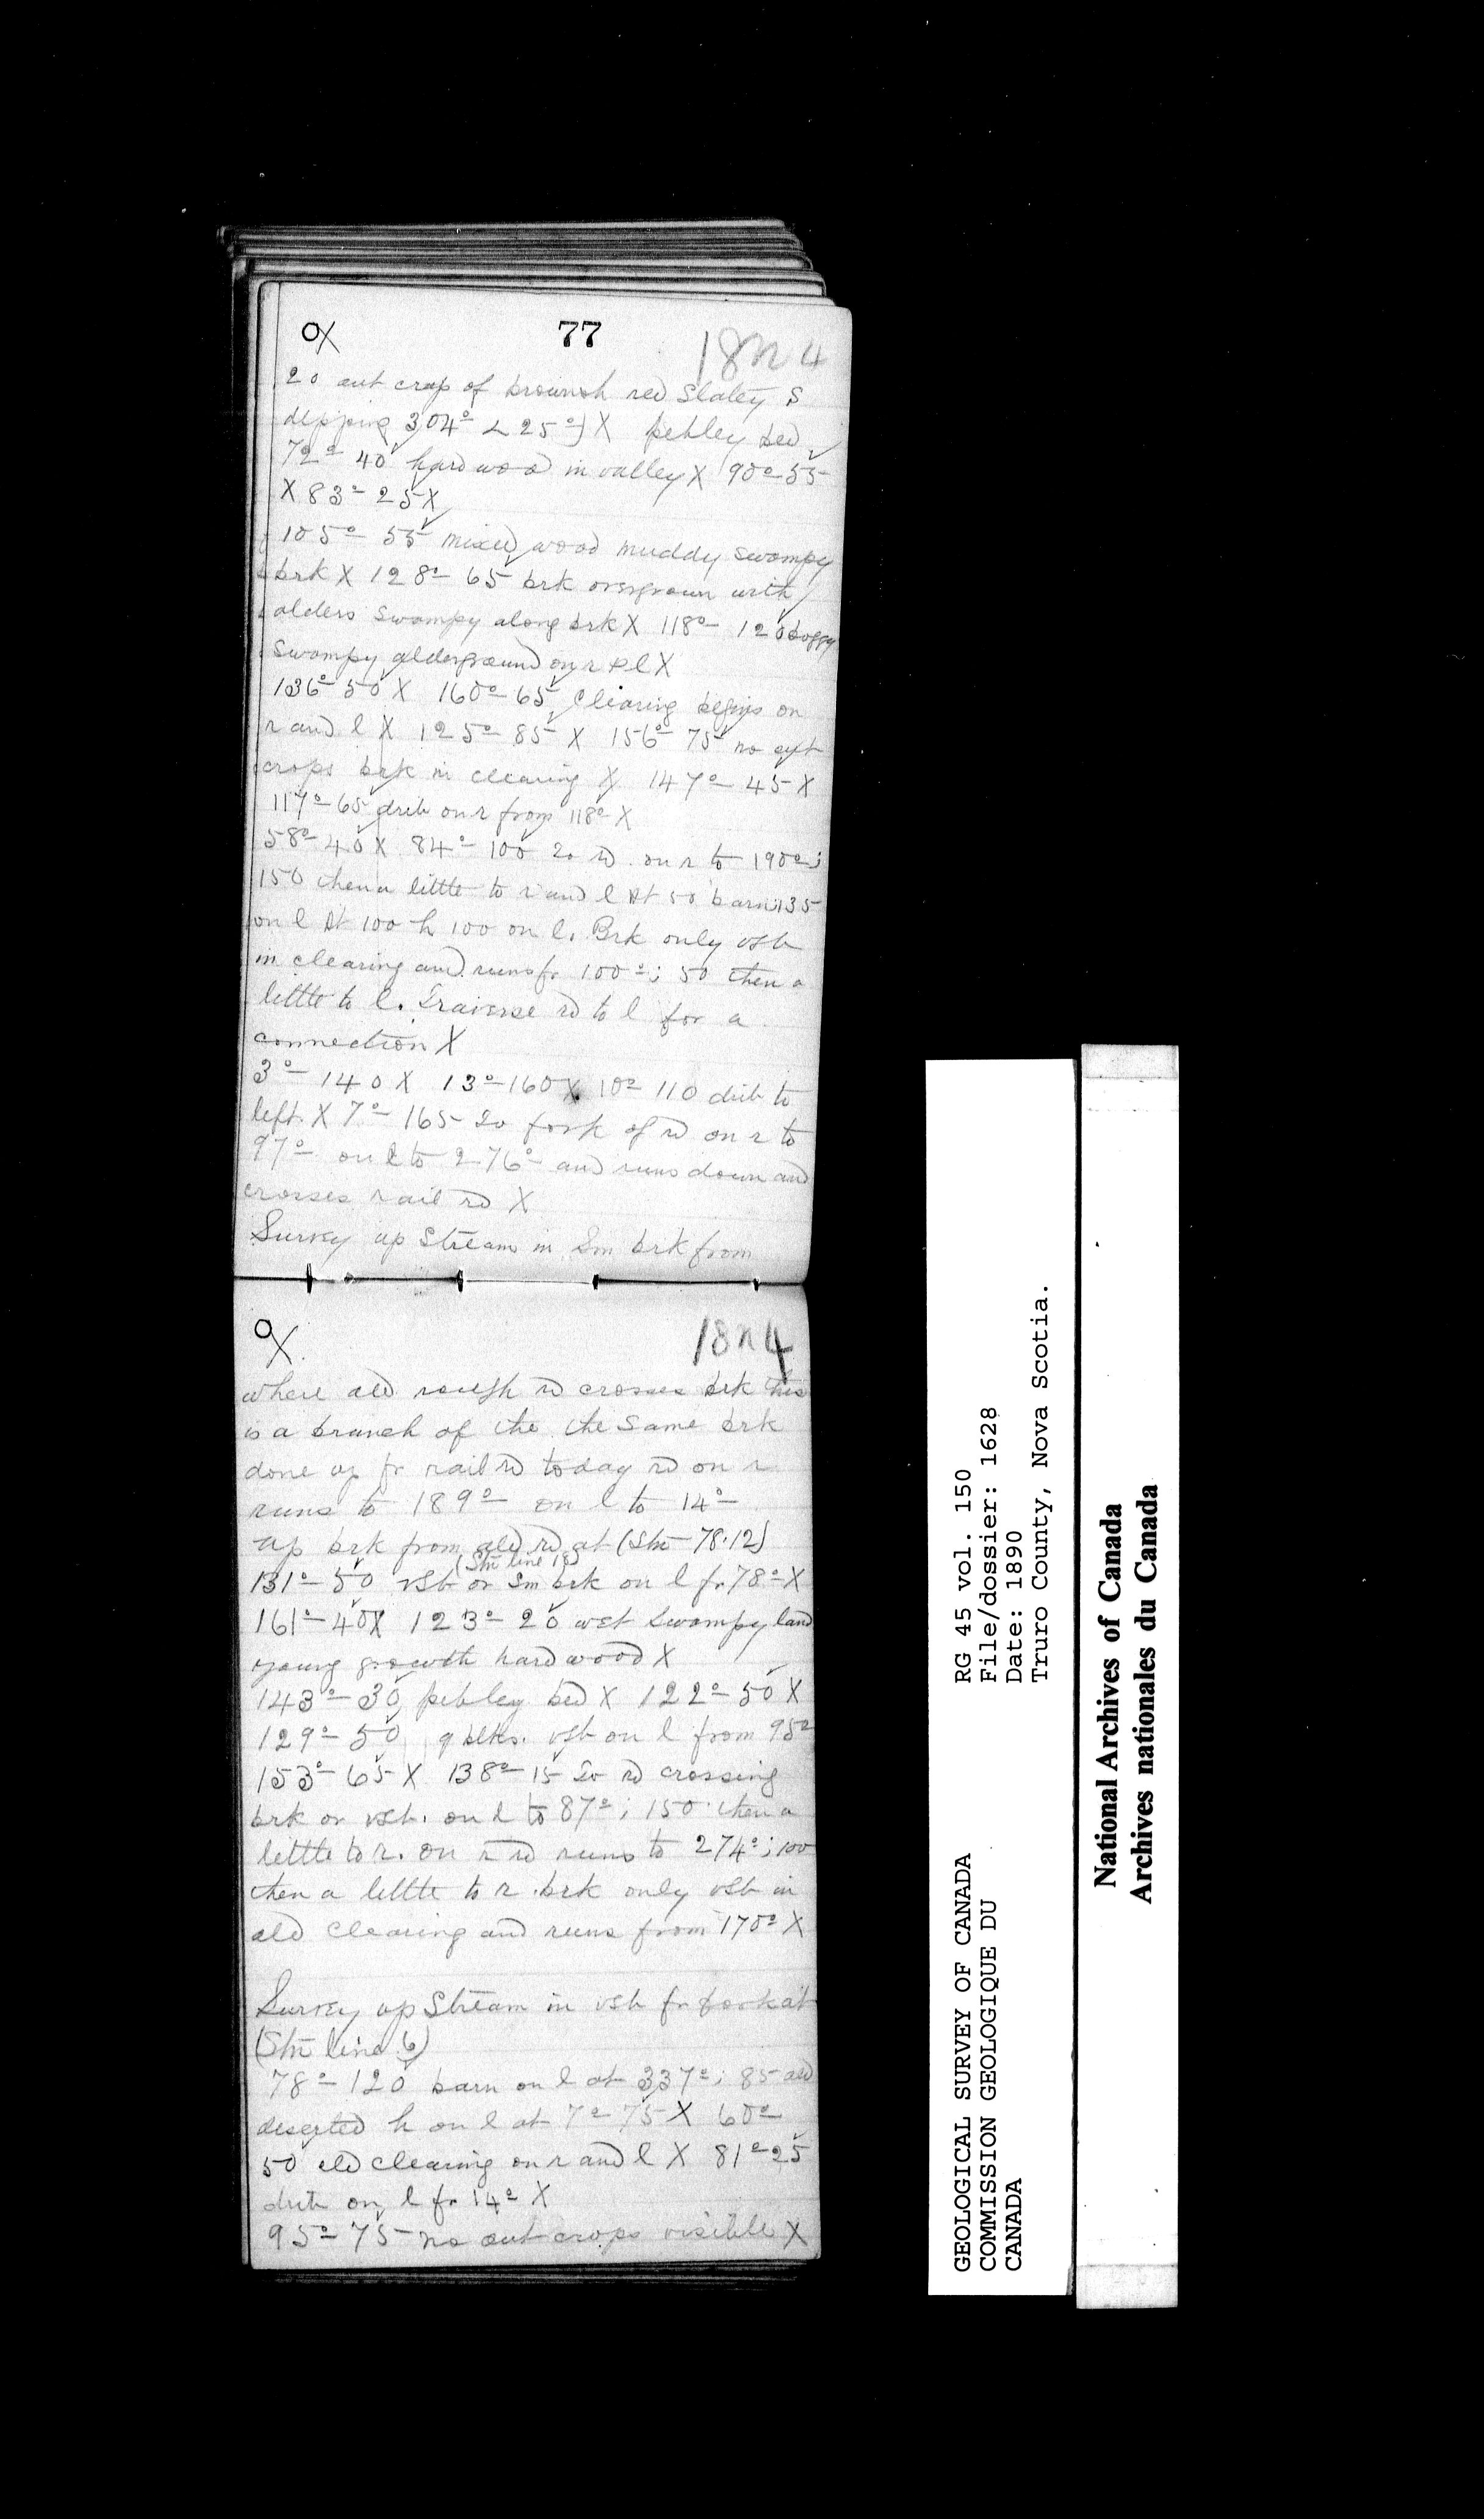 OX 77 18n4
20 out crop of brownish red Slatey S
dipping 304° < 25°) X pebley bed
72° 40 hard wood in valley X 90° 55
X 83° 25 X
105° 55 mixed wood muddy swampy
brk X 128° 65 brk overgrown with
alders swampy along brk X 118° 120 boggy
Swampy alderground on r & l X
136° 50 X 160° 65 Clearing begins on
r and l X 125° 85 X 156° 75 no out
crops brk in clearing X 147° 45 X
117° 65 drib on r from 118° X
58° 40 X 84° 100 20 rd on r to 190°;
150 then a little to r and l At 50 barn 135
on l At 100 h 100 on l. Brk only vsb
in clearing and runs fr 100°; 50 then a
little to l. Traverse rd to l for a
connection X
3° 140 X 13° 160 X 10° 110 drib to
left X 7° 165 20 fork of rd on r to
97° on l to 276° and runs down and
crosses rail rd X
Survey up Stream in Sm brk from
OX 18n4
where old rough rd crosses brk this
is a branch of the the same brk
done up fr rail rd today rd on r
runs to 189° on l to 14°
up brk from old rd at (Stn 78.12)
(Stn line 18)
131° 50 vsb or Sm brk on l fr 78° X
161° 40 X 123° 20 wet swampy land
young growth hard wood X
143° 30 pebley bed X 122° 50 X
129° 50 q blks. vsb on l from 95°
153° 65 X 138° 15 20 rd crossing
brk or vsb. on l to 87°; 150 then a
little to r. on r rd runs to 274°; 100
then a little to r. brk only vsb in
old clearing and runs from 170° X
Survey up Stream in vsb fr fork at
(Stn line 6)
78° 120 barn on l at 337°; 85 old
deserted h on l at 7° 75 X 60°
50 old clearing on r and l X 81° 25
drib on l fr 14° X
95° 75 no out crops visible X
GEOLOGICAL SURVEY OF CANADA
COMMISSION GEOLOGIQUE DU
CANADA
RG 45 vol. 150
File/dossier: 1628
Date: 1890
Truro County, Nova Scotia.
National Archives of Canada
Archives nationales du Canada